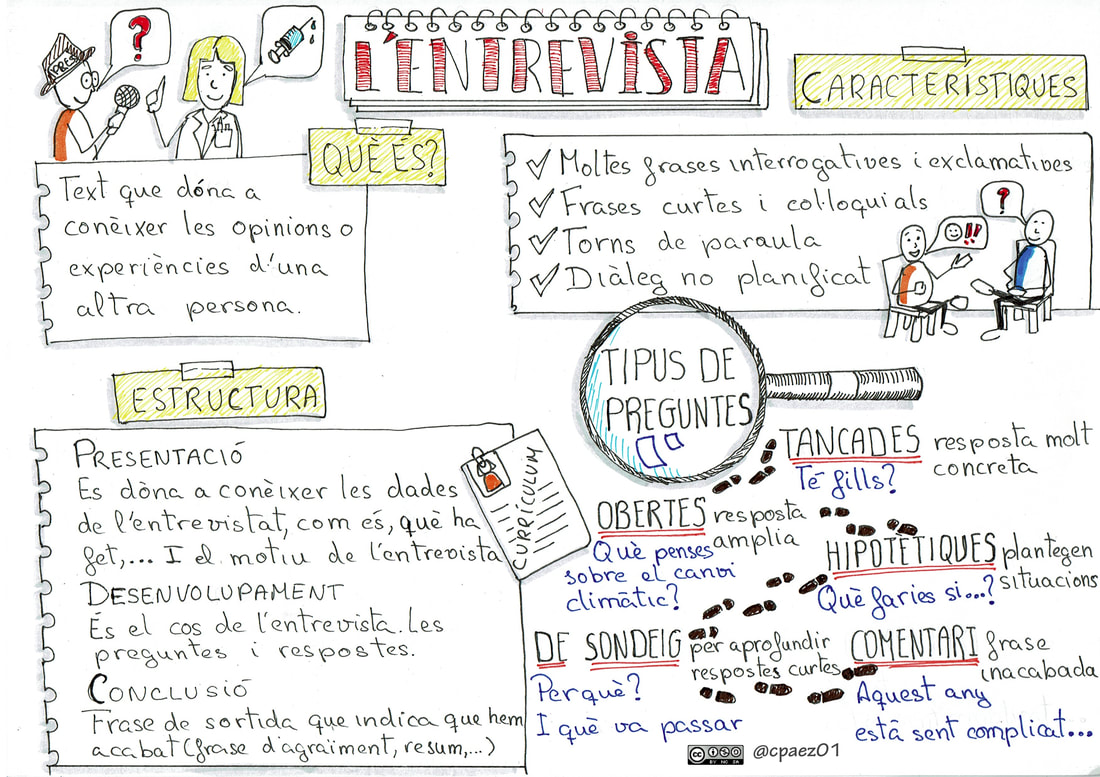 L'ENTREVISTA
PRESS
?
QUÈ ÉS?
Text que dóna a
conèixer les opinions o
experiències d'una
altra persona.
CARACTERÍSTIQUES
Moltes frases interrogatives i exclamatives
Frases curtes i col·loquials
Torns de paraula
Diàleg no planificat
?
!!
ESTRUCTURA
PRESENTACIÓ
Es dòna a conèixer les dades
de l'entrevistat, com és, què ha
fet,... I el motiu de l'entrevista
DESENVOLUPAMENT
És el cos de l'entrevista. Les
preguntes i respostes.
CONCLUSIÓ
Frase de sortida que indica que hem
acabat (frase d'agraïment, resum,...)
CURRÍCULUM
TIPUS DE
PREGUNTES
TANCADES resposta molt
concreta
Té fills?
OBERTES resposta
amplia
Què penses
sobre el canvi
climàtic?
HIPOTÈTIQUES plantegen
situacions
Què faries si...?
DE SONDEIG per aprofundir
respostes curtes
Per què?
I què va passar
COMENTARI frase
inacabada
Aquest any
està sent complicat...
cc BY NC SA @cpaez01